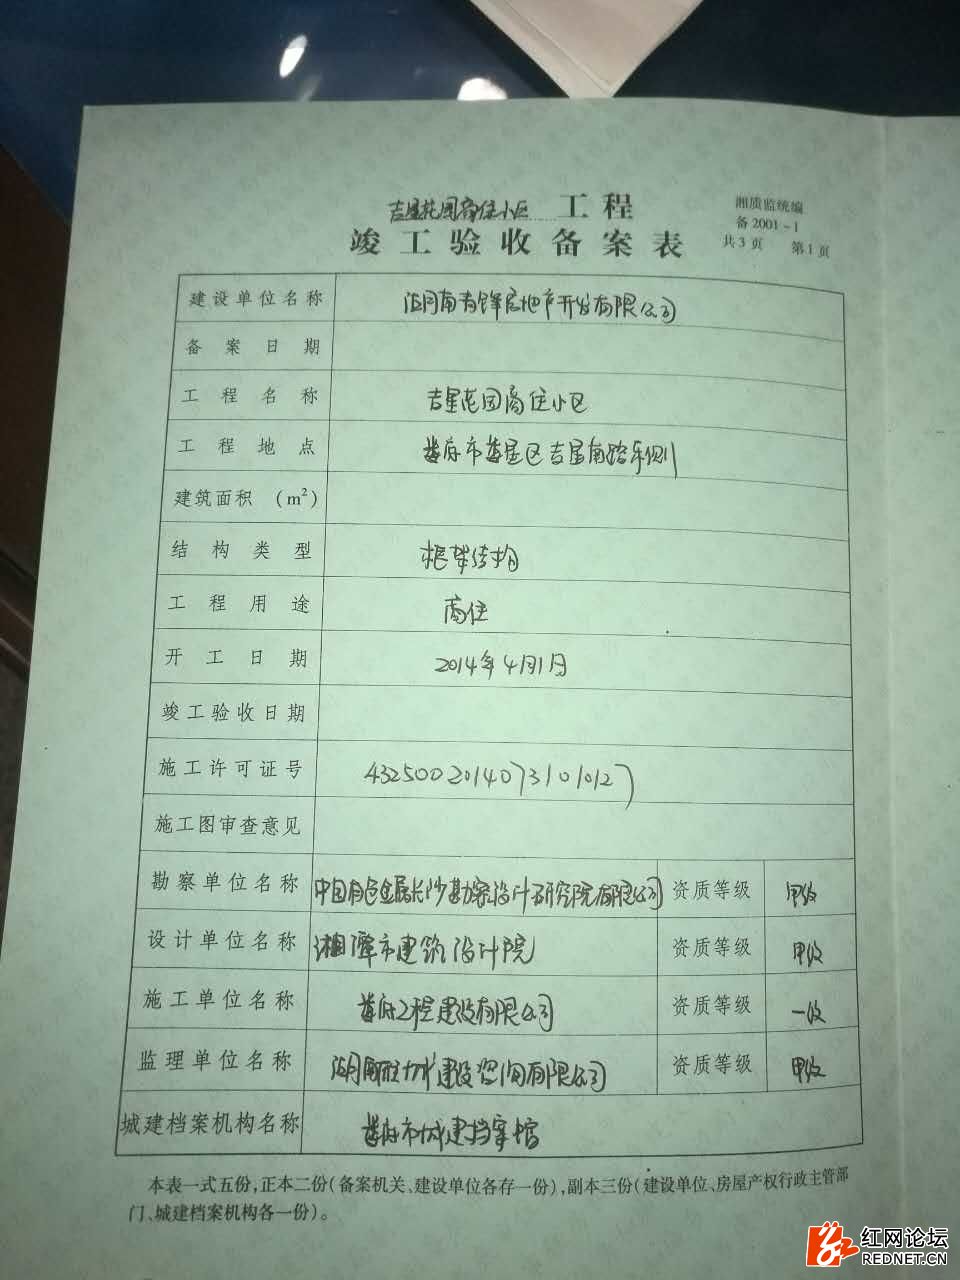 吉星花园商住小区 工程
竣工验收备案表
湘质监统编
备2001-1
共3页 第1页
建设单位名称 湖南青锋房地产开发有限公司
备案日期
工程名称 吉星花园商住小区
工程地点 娄底市娄星区吉星南路东侧
建筑面积 (m²)
结构类型 框架结构
工程用途 商住
开工日期 2014年4月1日
竣工验收日期
施工许可证号 432500201407310101027
施工图审查意见
勘察单位名称 中国有色金属长沙勘察设计研究院有限公司 资质等级 甲级
设计单位名称 湘潭市建筑设计院 资质等级 甲级
施工单位名称 娄底工程建设有限公司 资质等级 一级
监理单位名称 湖南 建设咨询有限公司 资质等级 甲级
城建档案机构名称 娄底市城建档案馆
本表一式五份,正本二份(备案机关、建设单位各存一份),副本三份(建设单位、房屋产权行政主管部
门、城建档案机构各一份)。
红网论坛
REDNET.CN